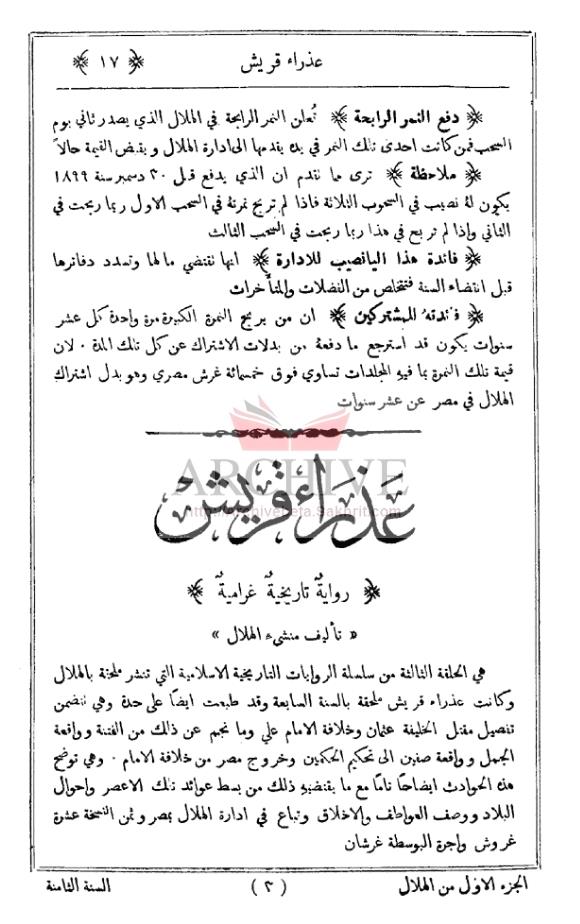 عذراء قريش
﴿ ١٧ ﴾
﴿ دفع النمر الرابحة ﴾ تُعلن النمر الرابحة في الهلال الذي يصدر ثاني يوم
السحب فمن كانت احدى تلك النمر في يده يقدمها الى ادارة الهلال ويقبض القيمة حالاً
﴿ ملاحظة ﴾ ترى مما تقدم ان الذي يدفع قبل ٢٠ دسمبر سنة ١٨٩٩
يكون لهُ نصيب في السحوب الثلاثة فاذا لم تربح نمرتهُ في السحب الاول ربما ربحت في
الثاني واذا لم تربح في هذا ربما ربحت في السحب الثالث
﴿ فائدة هذا اليانصيب للادارة ﴾ انها تقتضي مالها وتسدد دفاترها
قبل انقضاء السنة فتتخلص من الفضلات والمتأخرات
﴿ فائدته للمشتركين ﴾ ان من يربح النمرة الكبيرة مرة واحدة كل عشر
سنوات يكون قد استرجع ما دفعهُ من بدلات الاشتراك عن كل تلك المدة . لان
قيمة تلك النمرة بما فيهِ المجلدات تساوي فوق خمسمائة غرش مصري وهو بدل اشتراك
الهلال في مصر عن عشر سنوات
ARCHIVE
عذراء قريش
﴿ روايةٌ تاريخيةٌ غراميةٌ ﴾
« تأليف منشىء الهلال »
هي الحلقة الثالثة من سلسلة الروايات التاريخية الاسلامية التي تنشر ملحقة بالهلال
وكانت عذراء قريش ملحقة بالسنة السابعة وقد طبعت ايضاً على حدة وهي تتضمن
تفصيل مقتل الخليفة عثمان وخلافة الامام علي وما نجم عن ذلك من الفتنة وواقعة
الجمل وواقعة صفين الى تحكيم الحكمين وخروج مصر من خلافة الامام . وهي توضح
هذه الحوادث ايضاحاً تامًّا مع ما يقتضيهِ ذلك من بسط عوائد تلك الاعصر واحوال
البلاد ووصف العواطف والاخلاق وتباع في ادارة الهلال بمصر وثمن النسخة عشرة
غروش واجرة البوسطة غرشان
الجزء الاول من الهلال
( ٣ )
السنة الثامنة